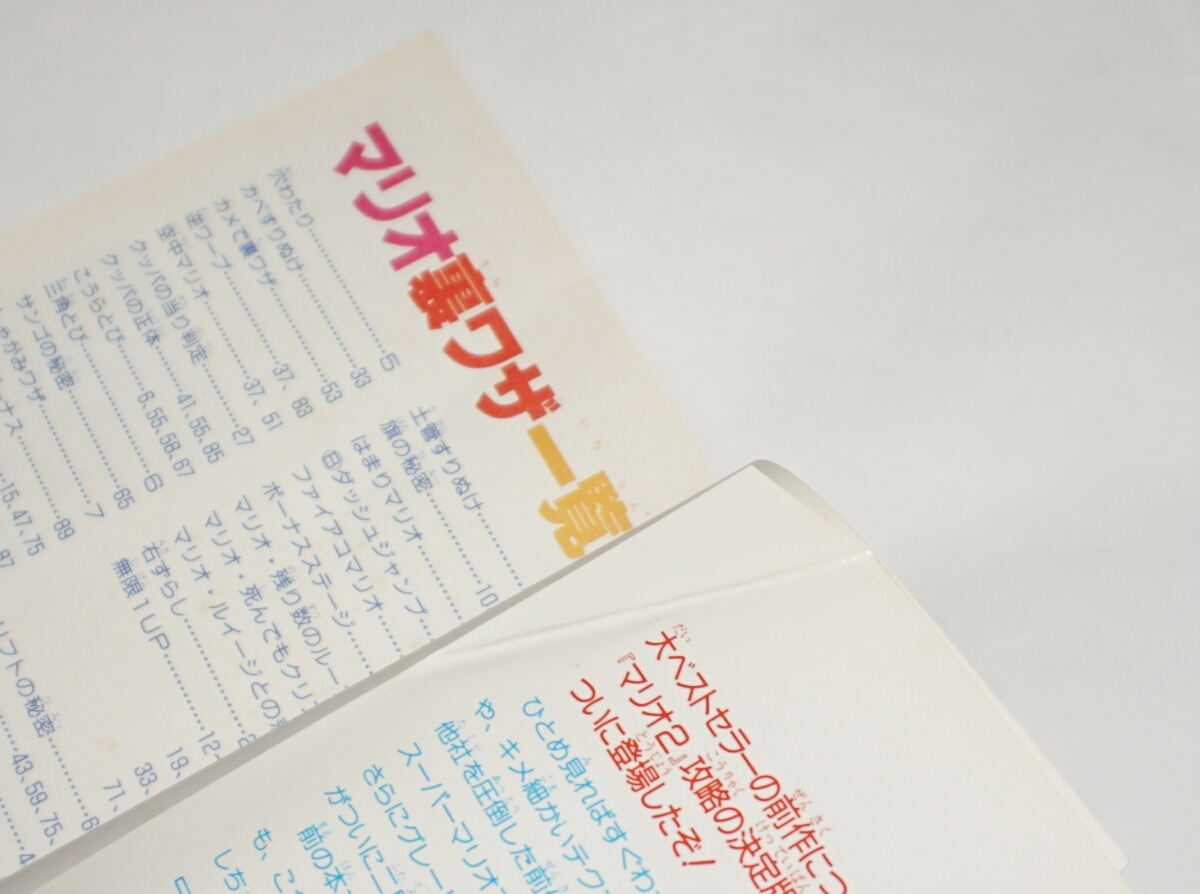 マリオ裏ワザ一覧
穴わたり……………5
カベすりぬけ……………33
カメで裏ワザ……………53
逆ワープ……………37、83
空中マリオ……………37、51
クッパの当り判定……………27
クッパの正体……………41、55、85
こうらとび……………6、55、58、67
三角とび……………6
サンゴの秘密……………65
ゃがみワザ……………7
ナス……………89
15、47、75
土管すりぬけ……………10
旗の秘密……………
はまりマリオ……………
Ⓑダッシュジャンプ
ファイアコマリオ
ボーナスステージ
マリオ・残り数のルー
マリオ・死んでもクリ
マリオ・ルイージとの
右ずらし……………12
無限1UP……………19、
33、
71、
リフトの秘密……………6
43、59、75、
大ベストセラーの前作につ
『マリオ2』攻略の決定版
ついに登場したぞ！
ひとめ見ればすぐわ
や、キメ細かいテク
他社を圧倒した前
スーパーマリオ
さらにグレー
がついに二
前の本
も、こ
しち